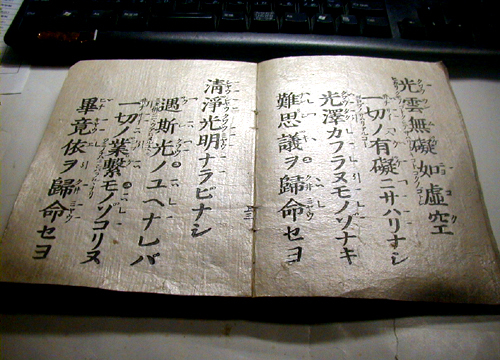 光雲無礙如虛空
一切ノ有礙ニサハリナシ
光澤カフラヌモノゾナキ
難思議ヲ歸命セヨ
清淨光明ナラビナシ
遇斯光ノユヘナレバ
一切ノ業繫モノゾコリヌ
畢竟依ヲ歸命セヨ